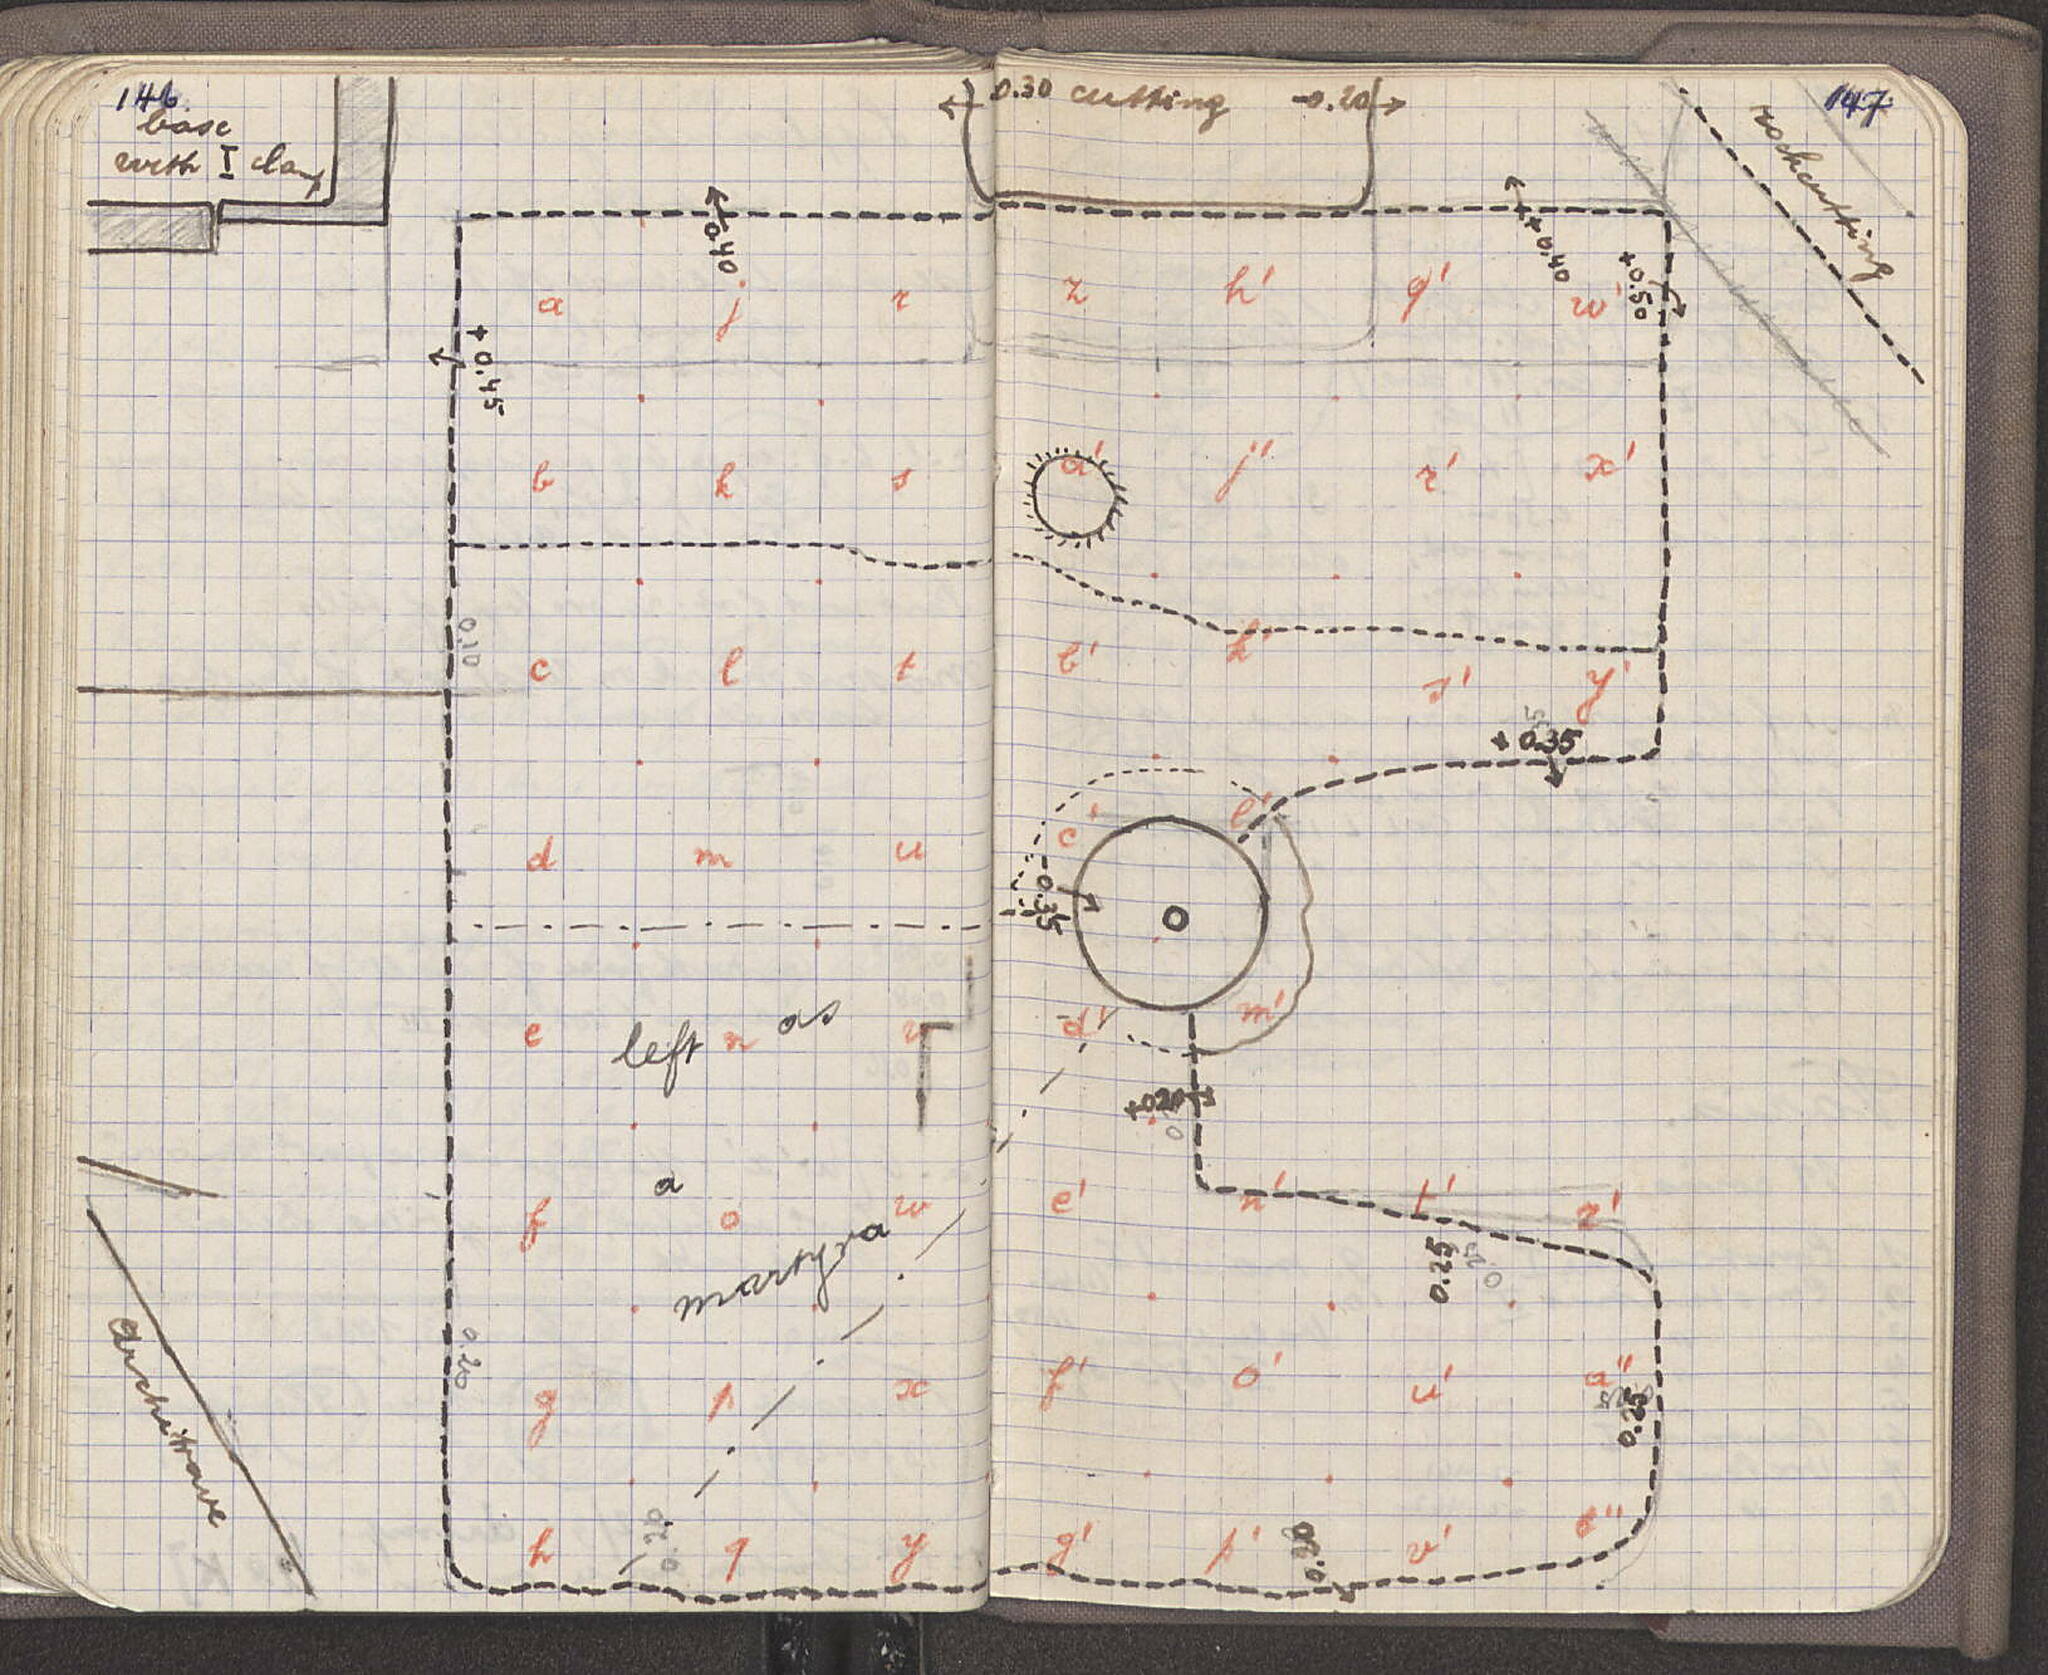 146
base
with I clamp
0.30 cutting -0.20
147
rockcutting
0.40
+0.40
+0.50
+0.45
a j r z h' q' w'
b k s a' j' r' x'
0.10
c l t b' k' s' y'
+0.35
d m u c' l'
-0.35
e left n as v d' m'
+0.20
a
f o w e' n' t' z'
martyra
0.25
0.20
architrave
g p x f' o' u' a''
0.25
0.20
0.20
h q y g' p' v' b''